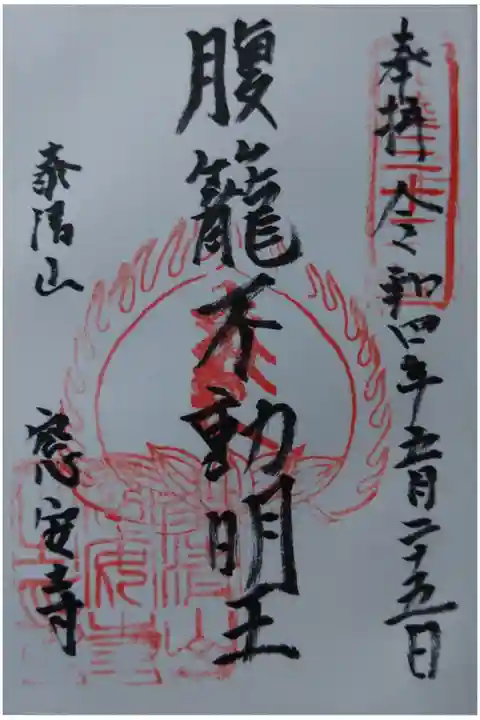 奉拝 令和四年五月二十五日
腹籠不動明王
泰清山 窓安寺